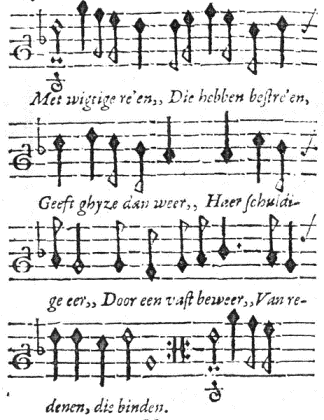 Met wigtige re'en,, Die hebben bestre'en,
Geeft ghyze dan weer,, Haer schuldi-
ge eer,, Door een vast beweer,, Van re-
denen, die binden.